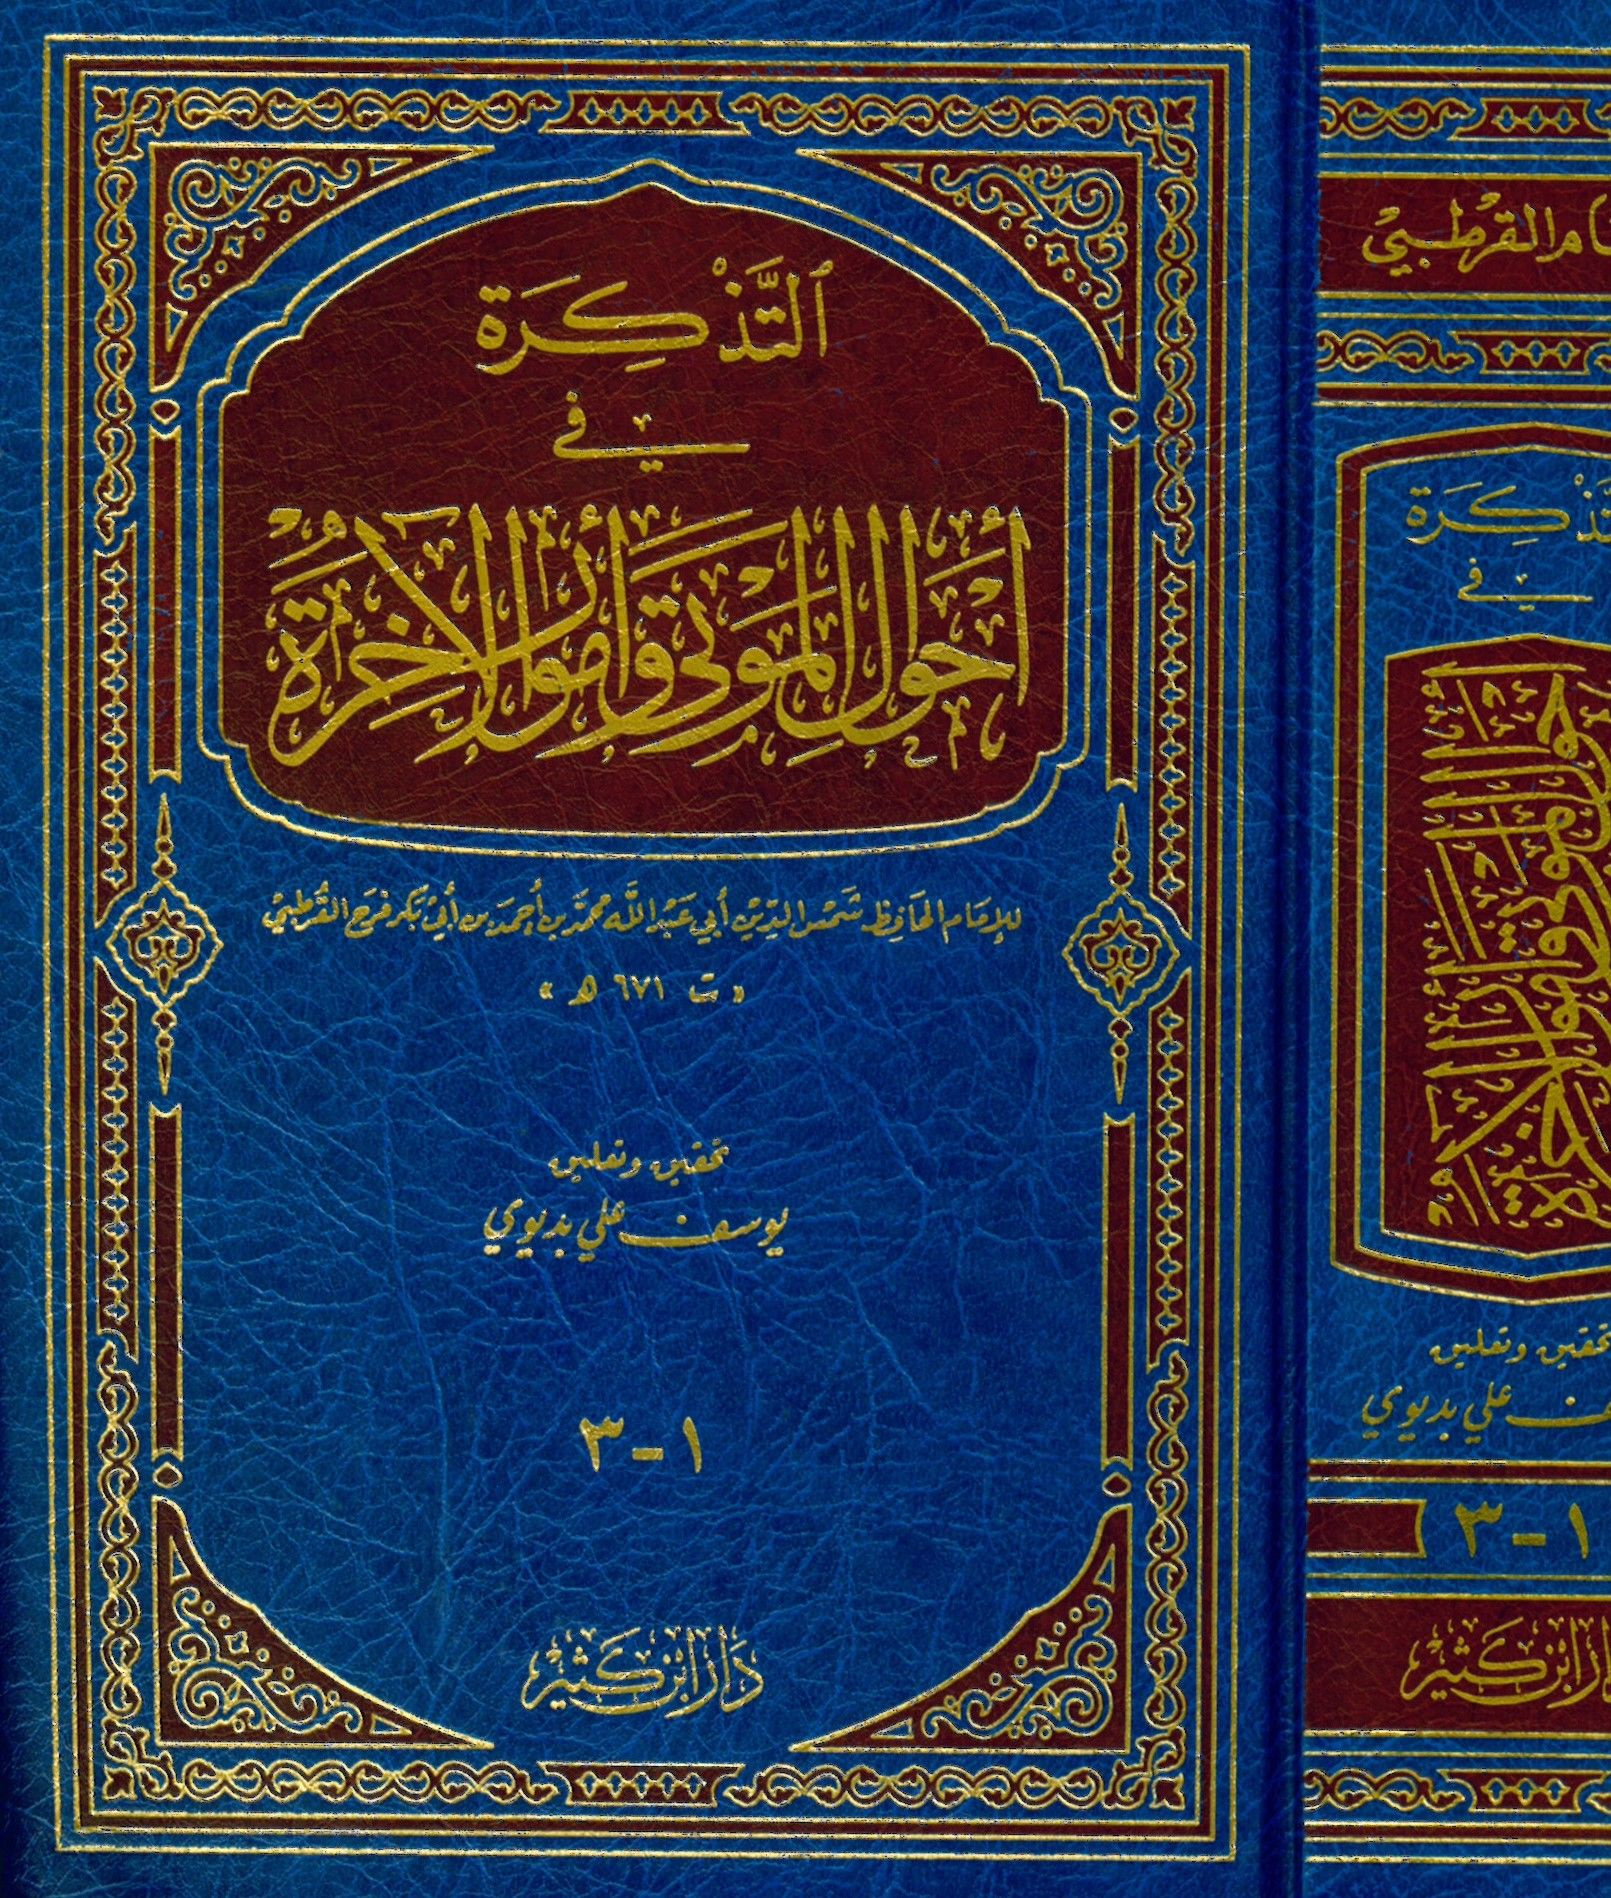 ٱلتَّذْكِرَة
في
أَحوَالِ الموَتَى وَأُمُورِ الآخِرَة
للإِمَام الحَافِظ شَمْس الدِّين أَبي عَبْد اللَّه محمَّد بن أَحمَد بن أَبي بَكر فرَح القُرطبيّ
« ت ٦٧١ هـ »
تحقيق وتعليق
يوسف علي بديوي
١ - ٣
دَار ابْن كَثِيْر
ام القرْطبيّ
ذْكِرَة
في
حوَال الموتى وأمور الآخرة
تحقيق وتعليق
ف علي بديوي
١ - ٣
ار ابْن كَثِيْر